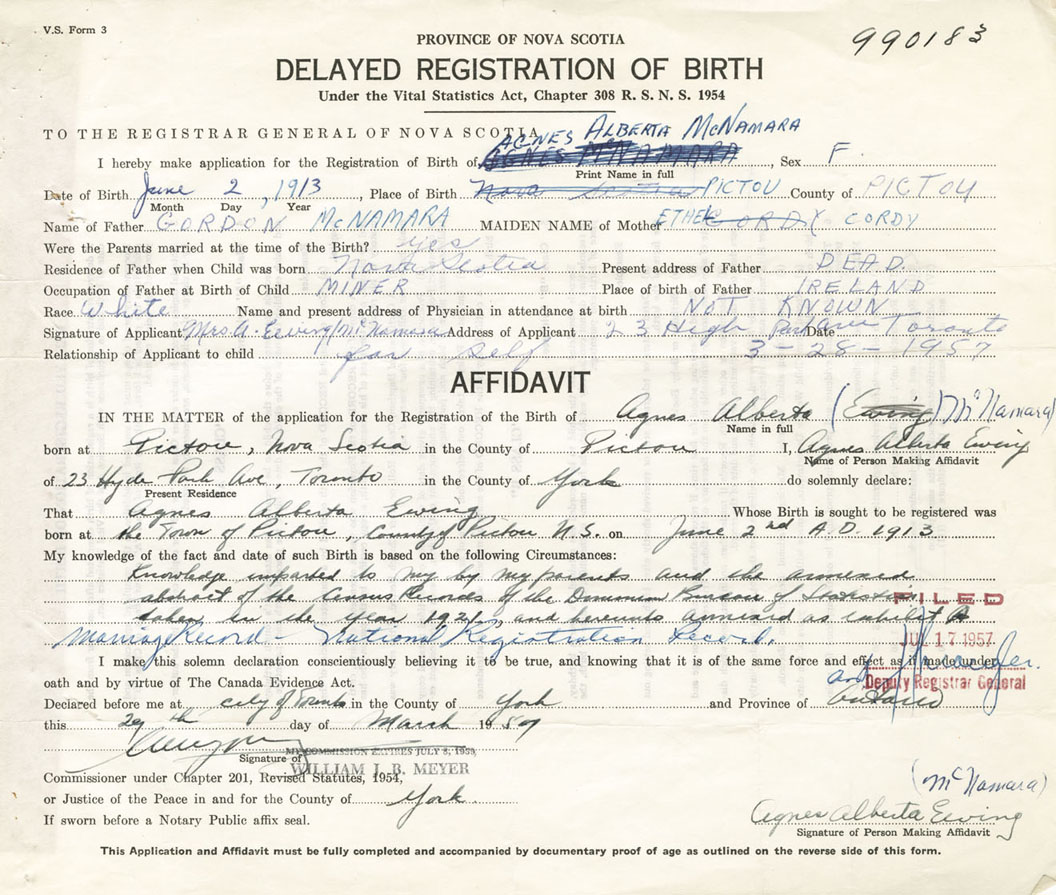 V.S. Form 3
990183
PROVINCE OF NOVA SCOTIA
DELAYED REGISTRATION OF BIRTH
Under the Vital Statistics Act, Chapter 308 R. S. N. S. 1954
TO THE REGISTRAR GENERAL OF NOVA SCOTIA
AGNES ALBERTA McNAMARA
I hereby make application for the Registration of Birth of AGNES McNAMARA, Sex F.
Print Name in full
Date of Birth June 2, 1913, Place of Birth Nova Scotia PICTOU County of PICTOU
Month Day Year
Name of Father GORDON McNAMARA MAIDEN NAME of Mother ETHEL CORDY CORDY
Were the Parents married at the time of the Birth? yes
Residence of Father when Child was born Nova Scotia Present address of Father DEAD.
Occupation of Father at Birth of Child MINER Place of birth of Father IRELAND
Race White Name and present address of Physician in attendance at birth NOT KNOWN
Signature of Applicant Mrs A. Ewing/McNamara Address of Applicant 23 High Park Ave Toronto
Date
Relationship of Applicant to child for self 3-28-1957
AFFIDAVIT
IN THE MATTER of the application for the Registration of the Birth of Agnes Alberta (Ewing) McNamara)
Name in full
born at Pictou, Nova Scotia in the County of Pictou I, Agnes Alberta Ewing
Name of Person Making Affidavit
of 23 Hyde Park Ave, Toronto in the County of York do solemnly declare:
Present Residence
That Agnes Alberta Ewing Whose Birth is sought to be registered was
born at the Town of Pictou, County of Pictou N.S. on June 2nd A.D. 1913
My knowledge of the fact and date of such Birth is based on the following Circumstances:
Knowledge imparted to my by my parents and the annexed
abstract of the Census Records of the Dominion Bureau of Statistics
taken in the year 1921, and hereunto annexed as exhibit A
Marriage Record - National Registration Record.
FILED
JUL 17 1957
I make this solemn declaration conscientiously believing it to be true, and knowing that it is of the same force and effect as if made under
oath and by virtue of The Canada Evidence Act.
Deputy Registrar General
Declared before me at City of Toronto in the County of York and Province of Ontario
this 29th day of March 1957
Signature of
MY COMMISSION EXPIRES JULY 8, 1959
WILLIAM J. B. MEYER
Commissioner under Chapter 201, Revised Statutes, 1954,
or Justice of the Peace in and for the County of York.
If sworn before a Notary Public affix seal.
(McNamara)
Agnes Alberta Ewing
Signature of Person Making Affidavit
This Application and Affidavit must be fully completed and accompanied by documentary proof of age as outlined on the reverse side of this form.